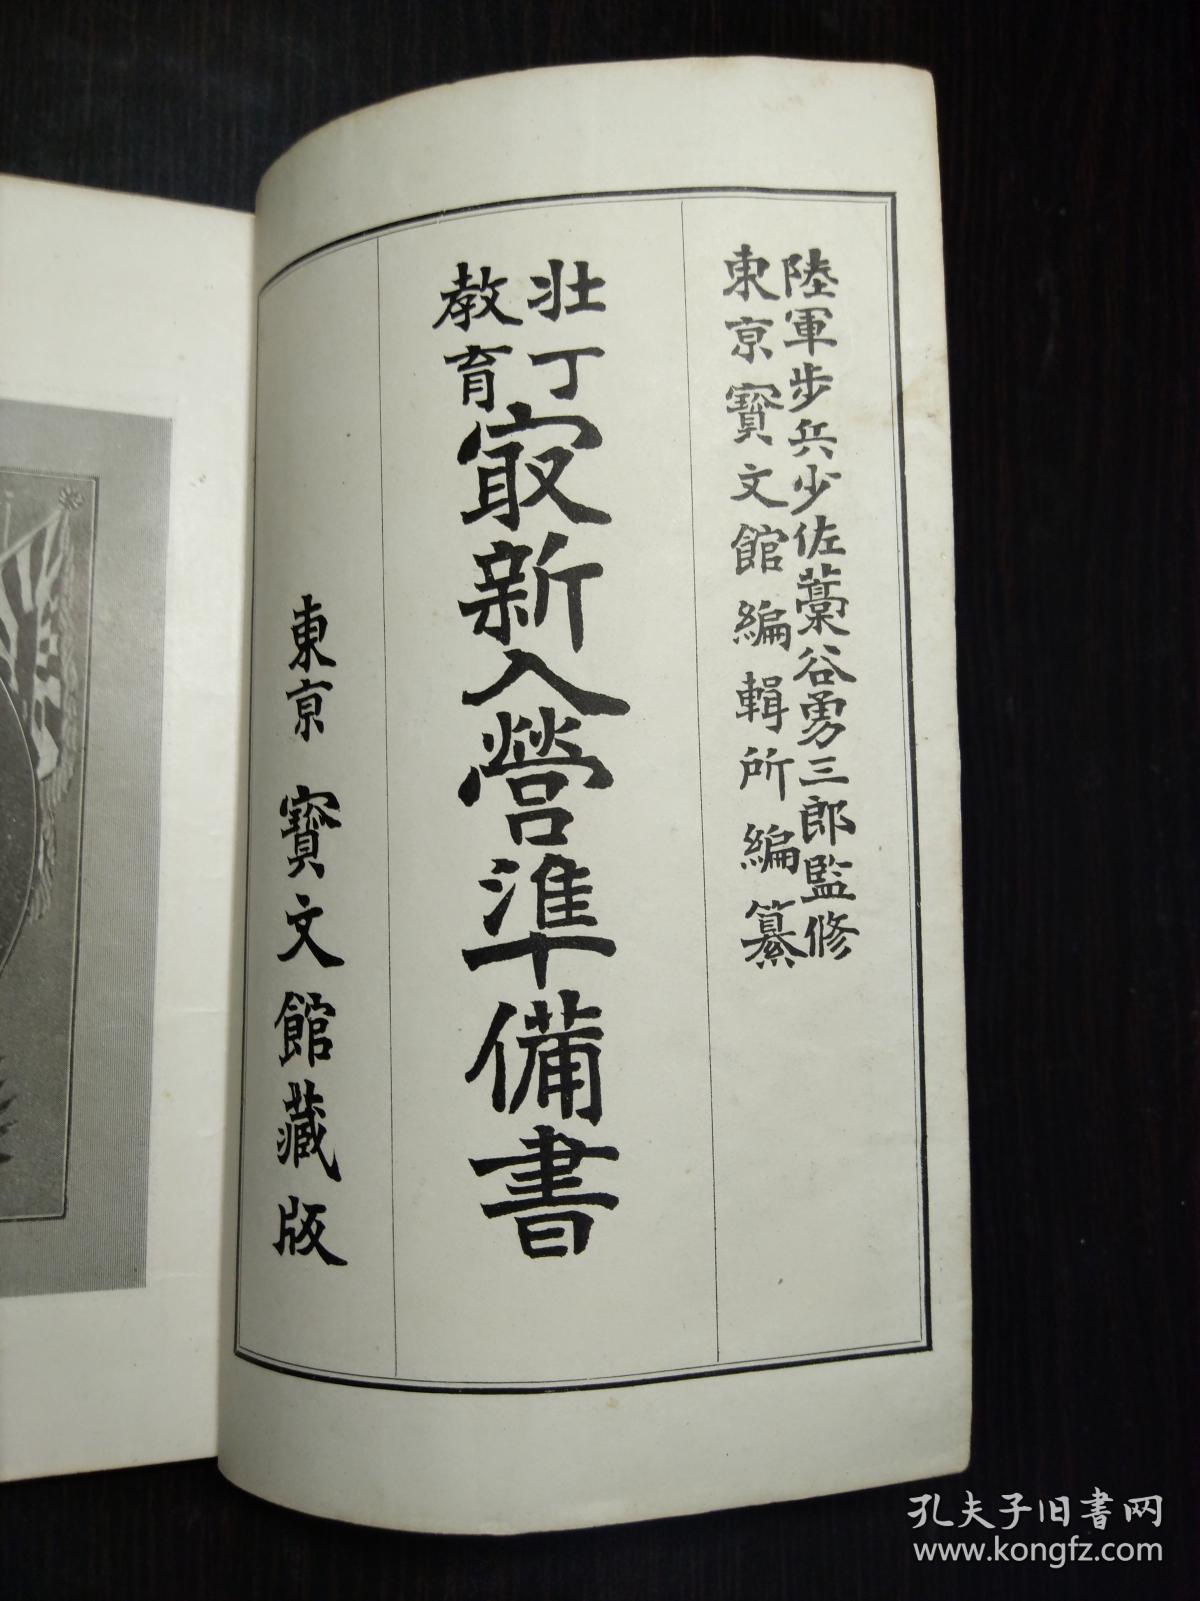 陸軍步兵少佐藁谷勇三郎監修
東京寶文館編輯所編纂
壯丁
教育
冣新入營準備書
東京 寶文館藏版
孔夫子旧書网
www.kongfz.com